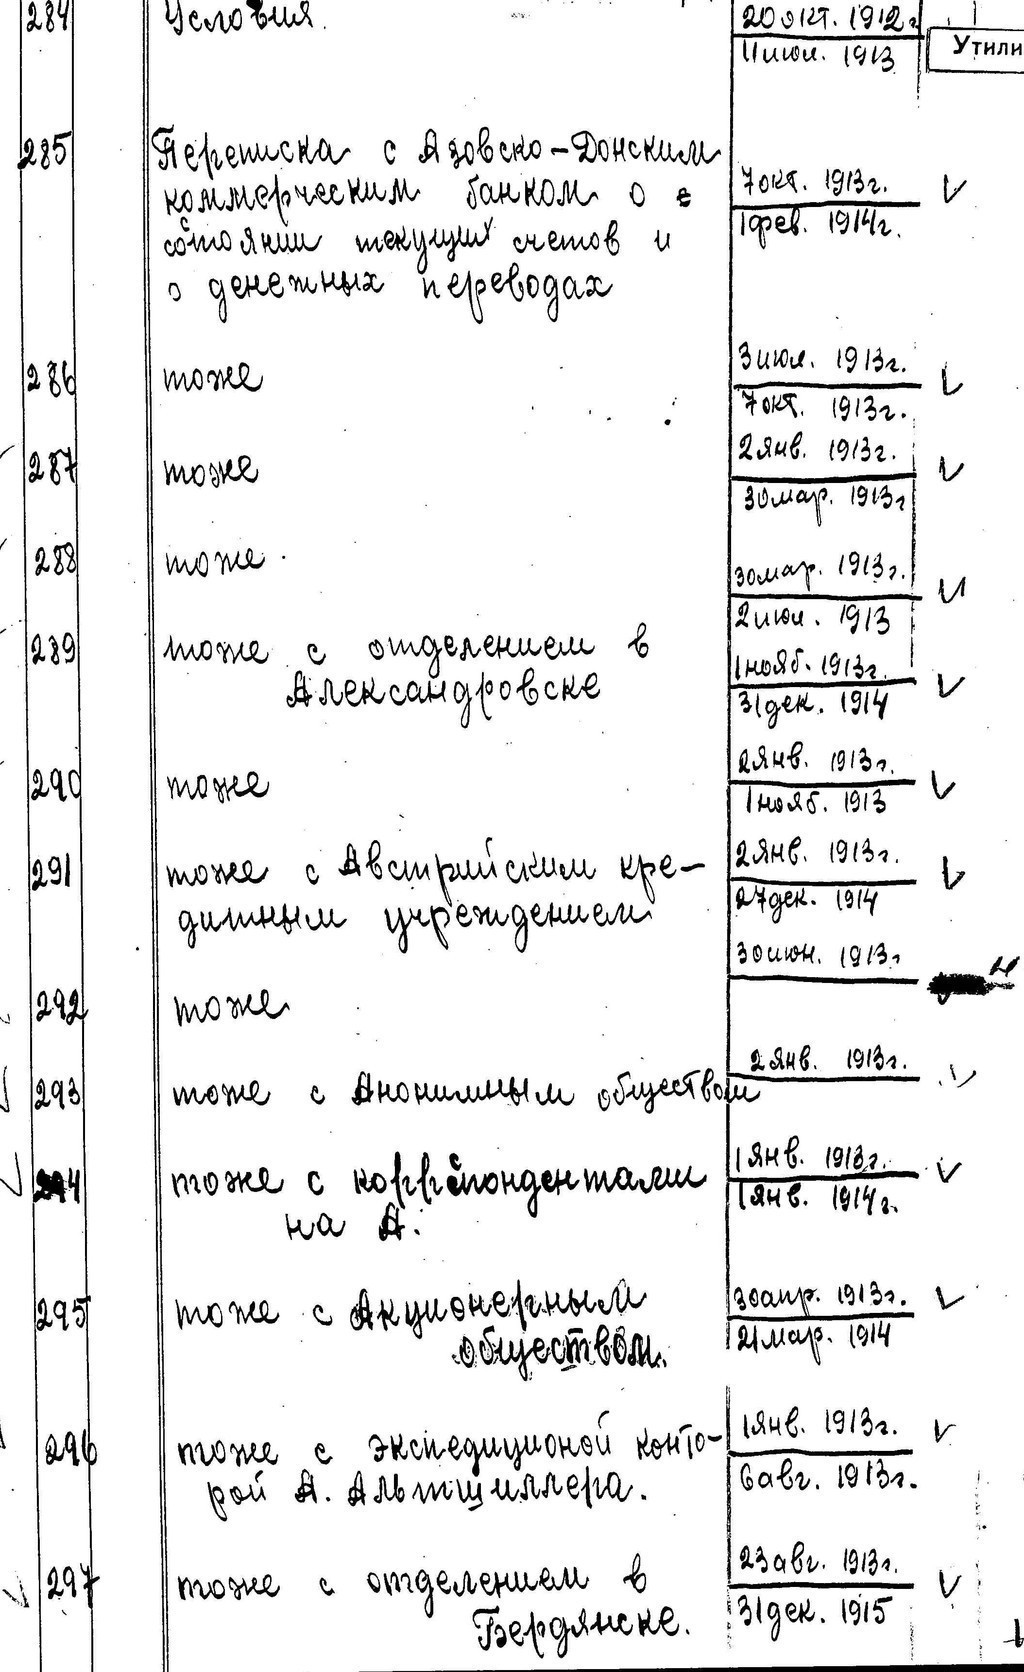 284 Условия. 20 окт. 1912 г.
11 июл. 1913
Утили
285 Переписка с Азовско-Донским
коммерческим банком о с 7 окт. 1913 г.
состоянии текущих счетов и 1 фев. 1914 г.
о денежных переводах
286 тоже 3 июл. 1913 г.
7 окт. 1913 г.
287 тоже 2 янв. 1913 г.
30 мар. 1913 г
288 тоже 30 мар. 1913 г.
2 июл. 1913
289 тоже с отделением в 1 нояб. 1913 г.
Александровске 31 дек. 1914
290 тоже 2 янв. 1913 г.
1 нояб. 1913
291 тоже с Австрийским кре- 2 янв. 1913 г.
дитным учреждением 27 дек. 1914
292 тоже 30 июн. 1913 г
293 тоже с Анонимным обществом 2 янв. 1913 г.
294 тоже с корреспондентами 1 янв. 1913 г.
на А. 1 янв. 1914 г.
295 тоже с Акционерным 30 апр. 1913 г.
обществом. 21 мар. 1914
296 тоже с экспедиционой конто- 1 янв. 1913 г.
рой А. Альтшиллера. 6 авг. 1913 г.
297 тоже с отделением в 23 авг. 1913 г.
Бердянске. 31 дек. 1915